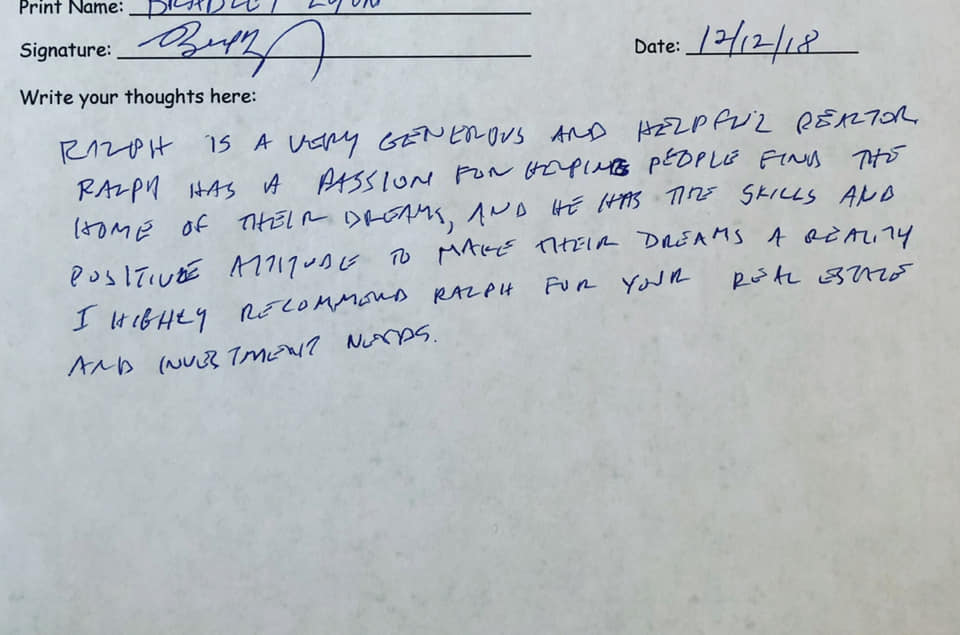 Print Name: BRADLEY
Signature:
Date: 12/12/18
Write your thoughts here:
RALPH IS A VERY GENEROUS AND HELPFUL REALTOR.
RALPH HAS A PASSION FOR HELPING PEOPLE FIND THE
HOME OF THEIR DREAMS, AND HE HAS THE SKILLS AND
POSITIVE ATTITUDE TO MAKE THEIR DREAMS A REALITY
I HIGHLY RECOMMEND RALPH FOR YOUR REAL ESTATE
AND INVESTMENT NEEDS.